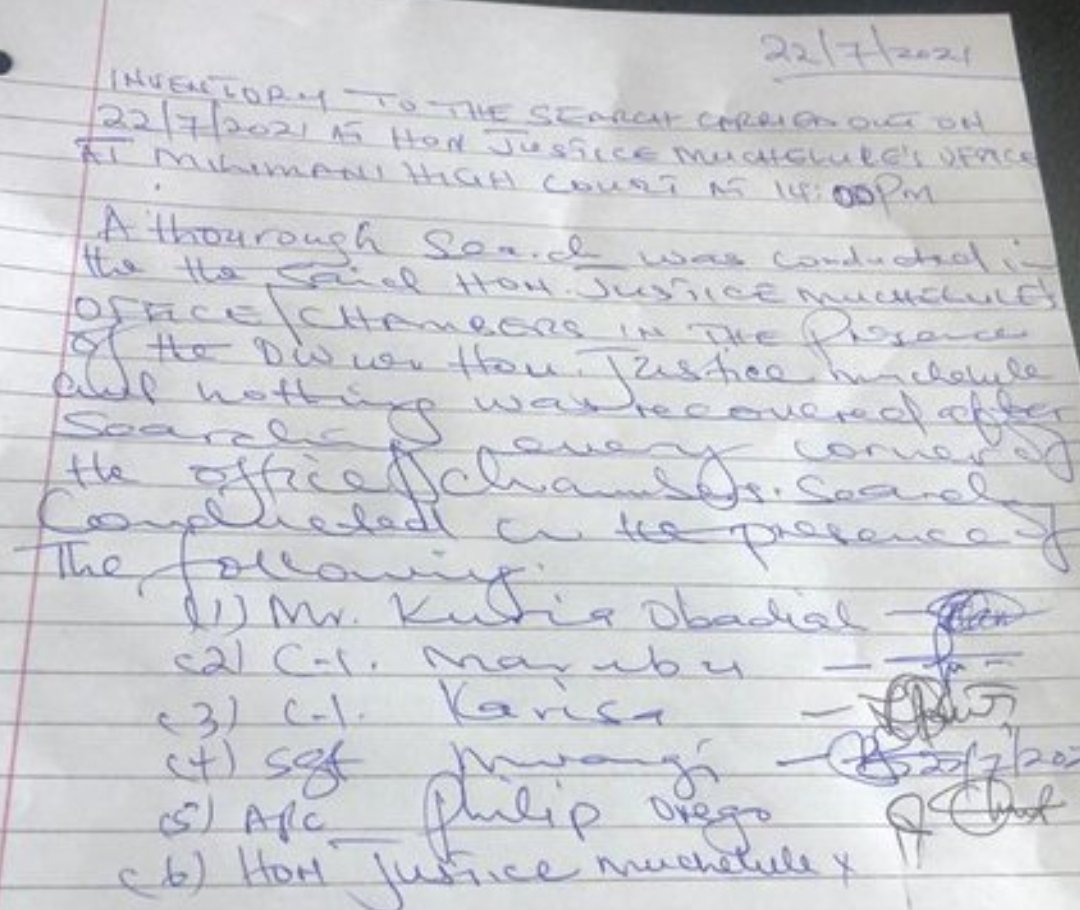 22/7/2021
INVENTORY TO THE SEARCH CARRIED OUT ON
22/7/2021 AT HON JUSTICE MUCHELULE'S OFFICE
AT MILIMANI HIGH COURT AT 14:00Pm
A thourough Search was conducted in
the the said HON. JUSTICE MUCHELULE'S
OFFICE/CHAMBERS IN THE Presence
of the Owner Hon. Justice muchelule
and nothing was recovered after
Searching every corner of
the office/chambers. Search
Conducted in the presence of
The following:
(1) Mr. Kuria Obadiah
(2) C.I. Marubu
(3) C.I. Karisa
(4) Sgt Mwangi 22/7/202
(5) APC Philip Orego
(6) HON Justice Muchelule x